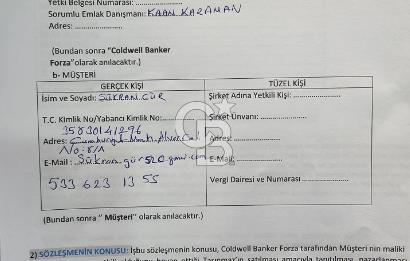 Yetki Belgesi Numarası: ....................
Sorumlu Emlak Danışmanı: KAAN KARAMAN
Adres: ....................
(Bundan sonra "Coldwell Banker
Forza"olarak anılacaktır.)
b- MÜŞTERİ
GERÇEK KİŞİ
TÜZEL KİŞİ
İsim ve Soyadı: ŞÜKRAN GÜR
Şirket Adına Yetkili Kişi: ....................
T.C. Kimlik No/Yabancı Kimlik No:
Şirket Ünvanı: ....................
35830141296
Adres: Cumhuriyet Mah.
Adres: ....................
No: 8/1
E-Mail: Şükran.gür520.gmail.com
E-Mail: ....................
533 623 13 55
Vergi Dairesi ve Numarası ....................
(Bundan sonra " Müşteri" olarak anılacaktır.)
2) SÖZLEŞMENİN KONUSU: İşbu sözleşmenin konusu, Coldwell Banker Forza tarafından Müşteri nin maliki